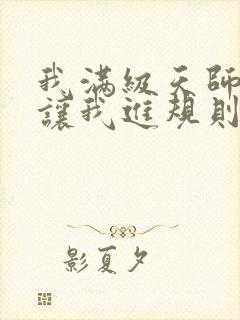 我滿級天師
讓我進規則
影夏夕